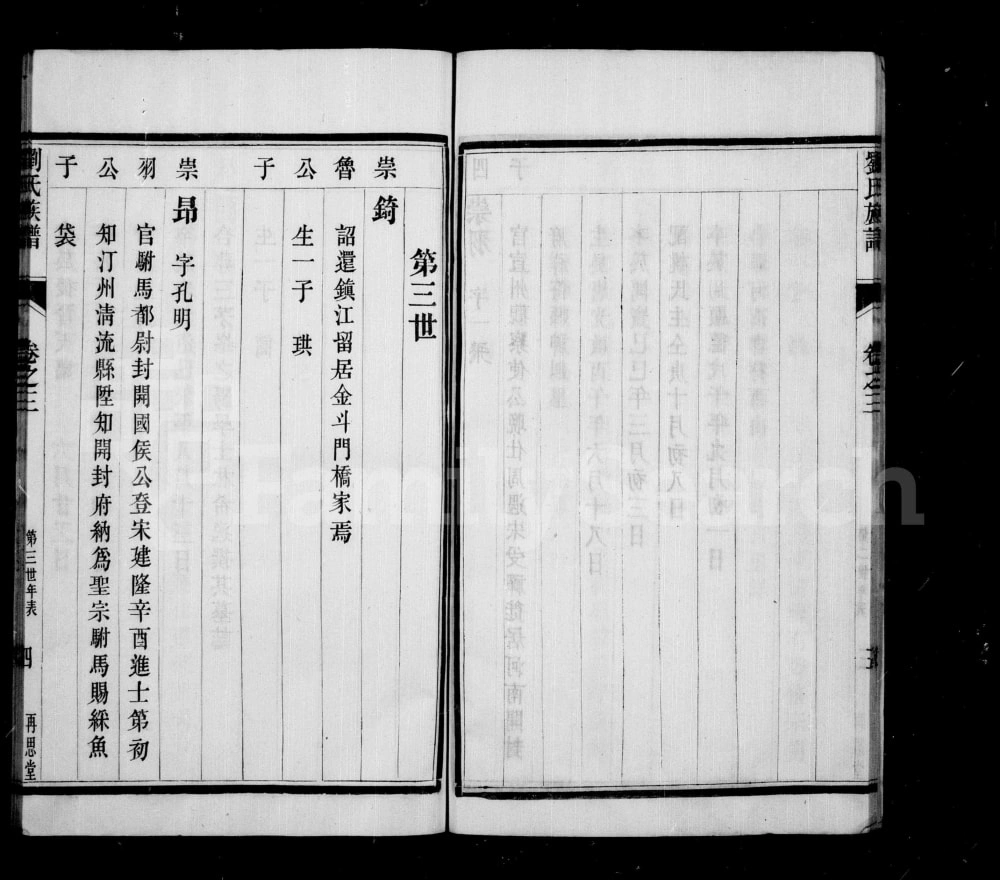 劉氏族譜
卷之三
第三世
崇魯公子
錡
詔還鎮江留居金斗門橋家焉
生一子 珙
崇羽公子
昻 字孔明
官駙馬都尉封開國侯公登宋建隆辛酉進士第初
知汀州清流縣陞知開封府納爲聖宗駙馬賜綵魚
袋
劉氏族譜
卷之三
第三世年表
四
再思堂